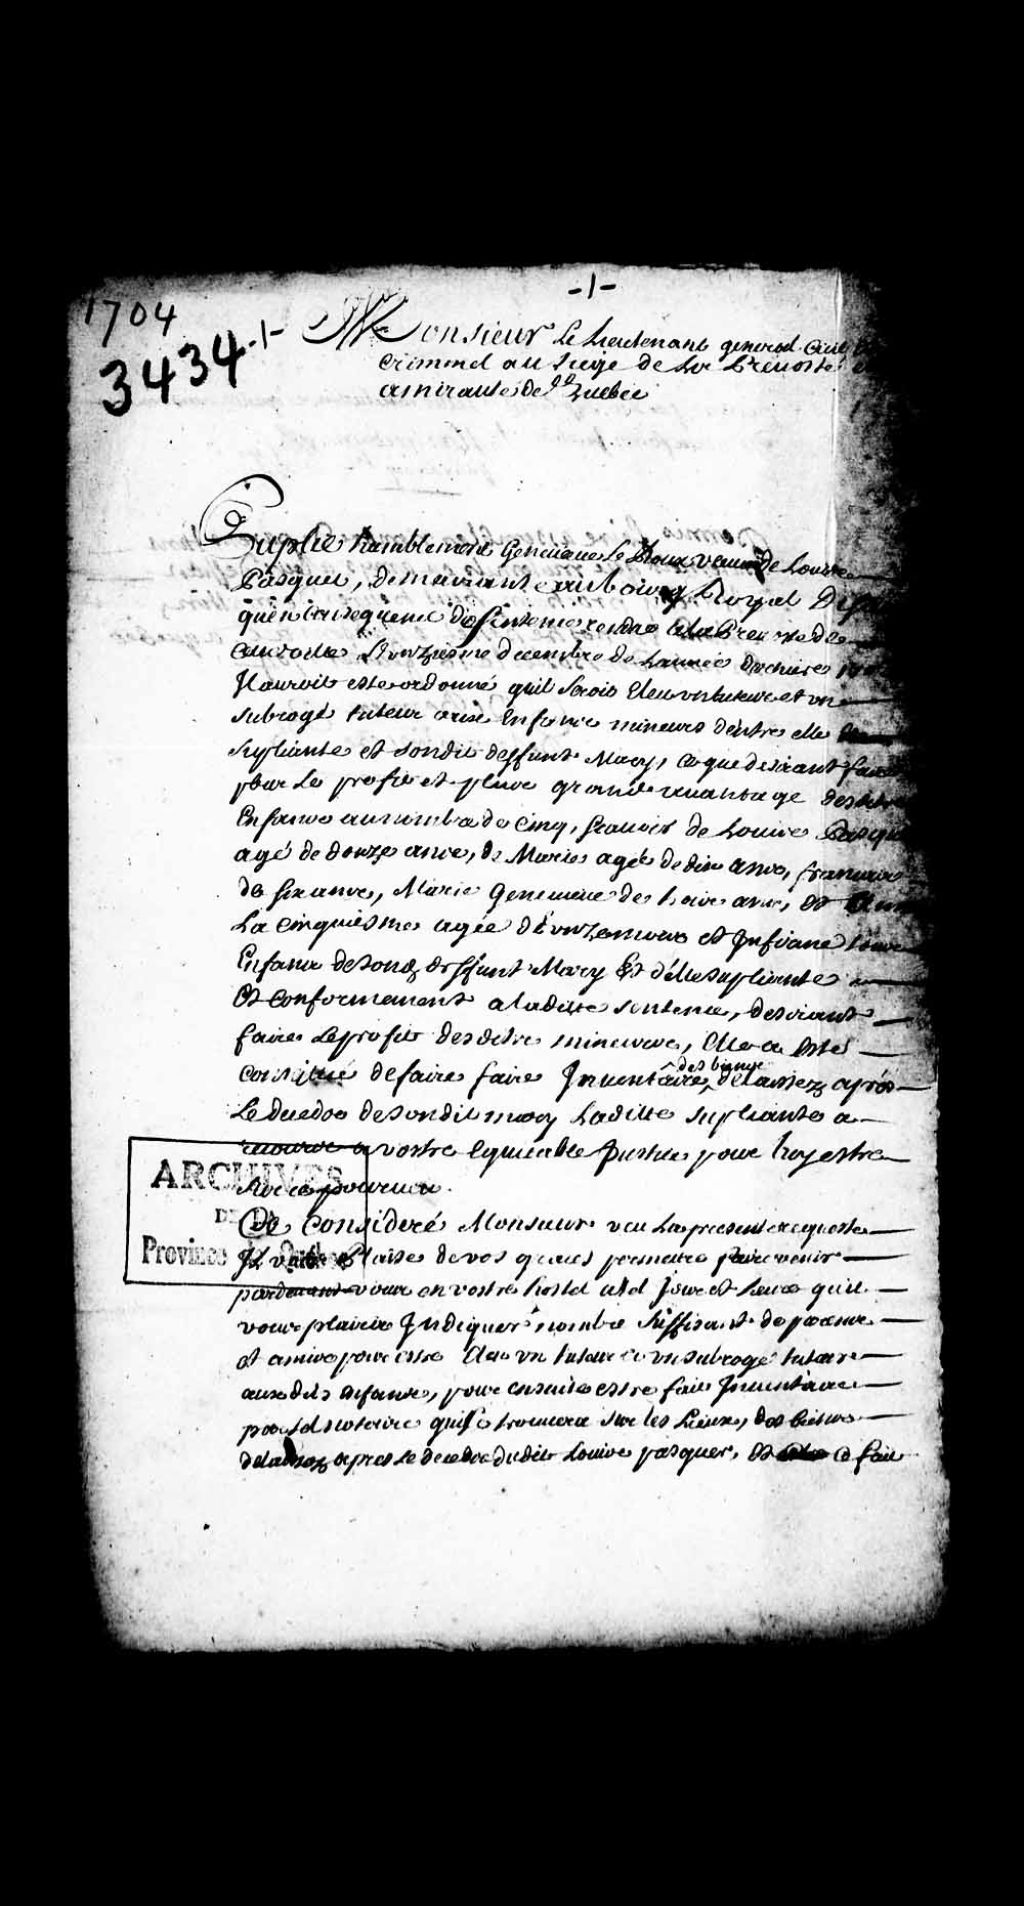 -1-
1704
3434-1-
Monsieur Le Lieutenant general Civil
criminel au siege de La Prevosté
amirauté de Quebec
Suplie humblement Genevieve Le Roux veuve de Louis
Pasquer, demeurant au bourg Royal
qu'en consequence de sentence rendue a la Prevosté de
cette ville decembre de Lannée derniere
Il auroit esté ordonné quil seroit Eleu un tuteur et un
subrogé tuteur aux Enfans mineurs d'entre elle
supliante et dondit deffunt Mary, ce que desirant faire
pour Le profit et plus grand avantage desdits
Enfans au nombre de Cinq, scauoir de Louis Pasquer
agé de douze ans, de Marie agée de dix ans, francois
de six ans, Marie Genevieve de trois ans, et
La cinquiesme agée d'unze mois et
Enfans de sond deffunt Mary Et d'elle supliante
Et conformement a laditte sentence, desirant
faire Le profit desdits mineurs, Elle a esté
conseillé de faire faire Inventaire, des biens delaissez aprés
Le deceds de sondit mary Laditte supliante a
recours a vostre Equitable Justice pour luy estre
sur ce pourveu.
Ce Consideré Monsieur veu La presente requeste
Il vous Plaise de vos graces permettre faire venir
pardevant vous en vostre hostel a tel Jour et heure quil
vous plaira Indiquer nombre suffisant de parens
et amis pour estre Eleu un tuteur et un subrogé tuteur
ausdits enfans, pour ensuite estre fait Inventaire
par tel notaire qui se trouvera sur les Lieux, des biens
delaissez apres le deceds dudit Louis pasquer, et ce fait
ARCHIVES
DE LA
Province de Québec